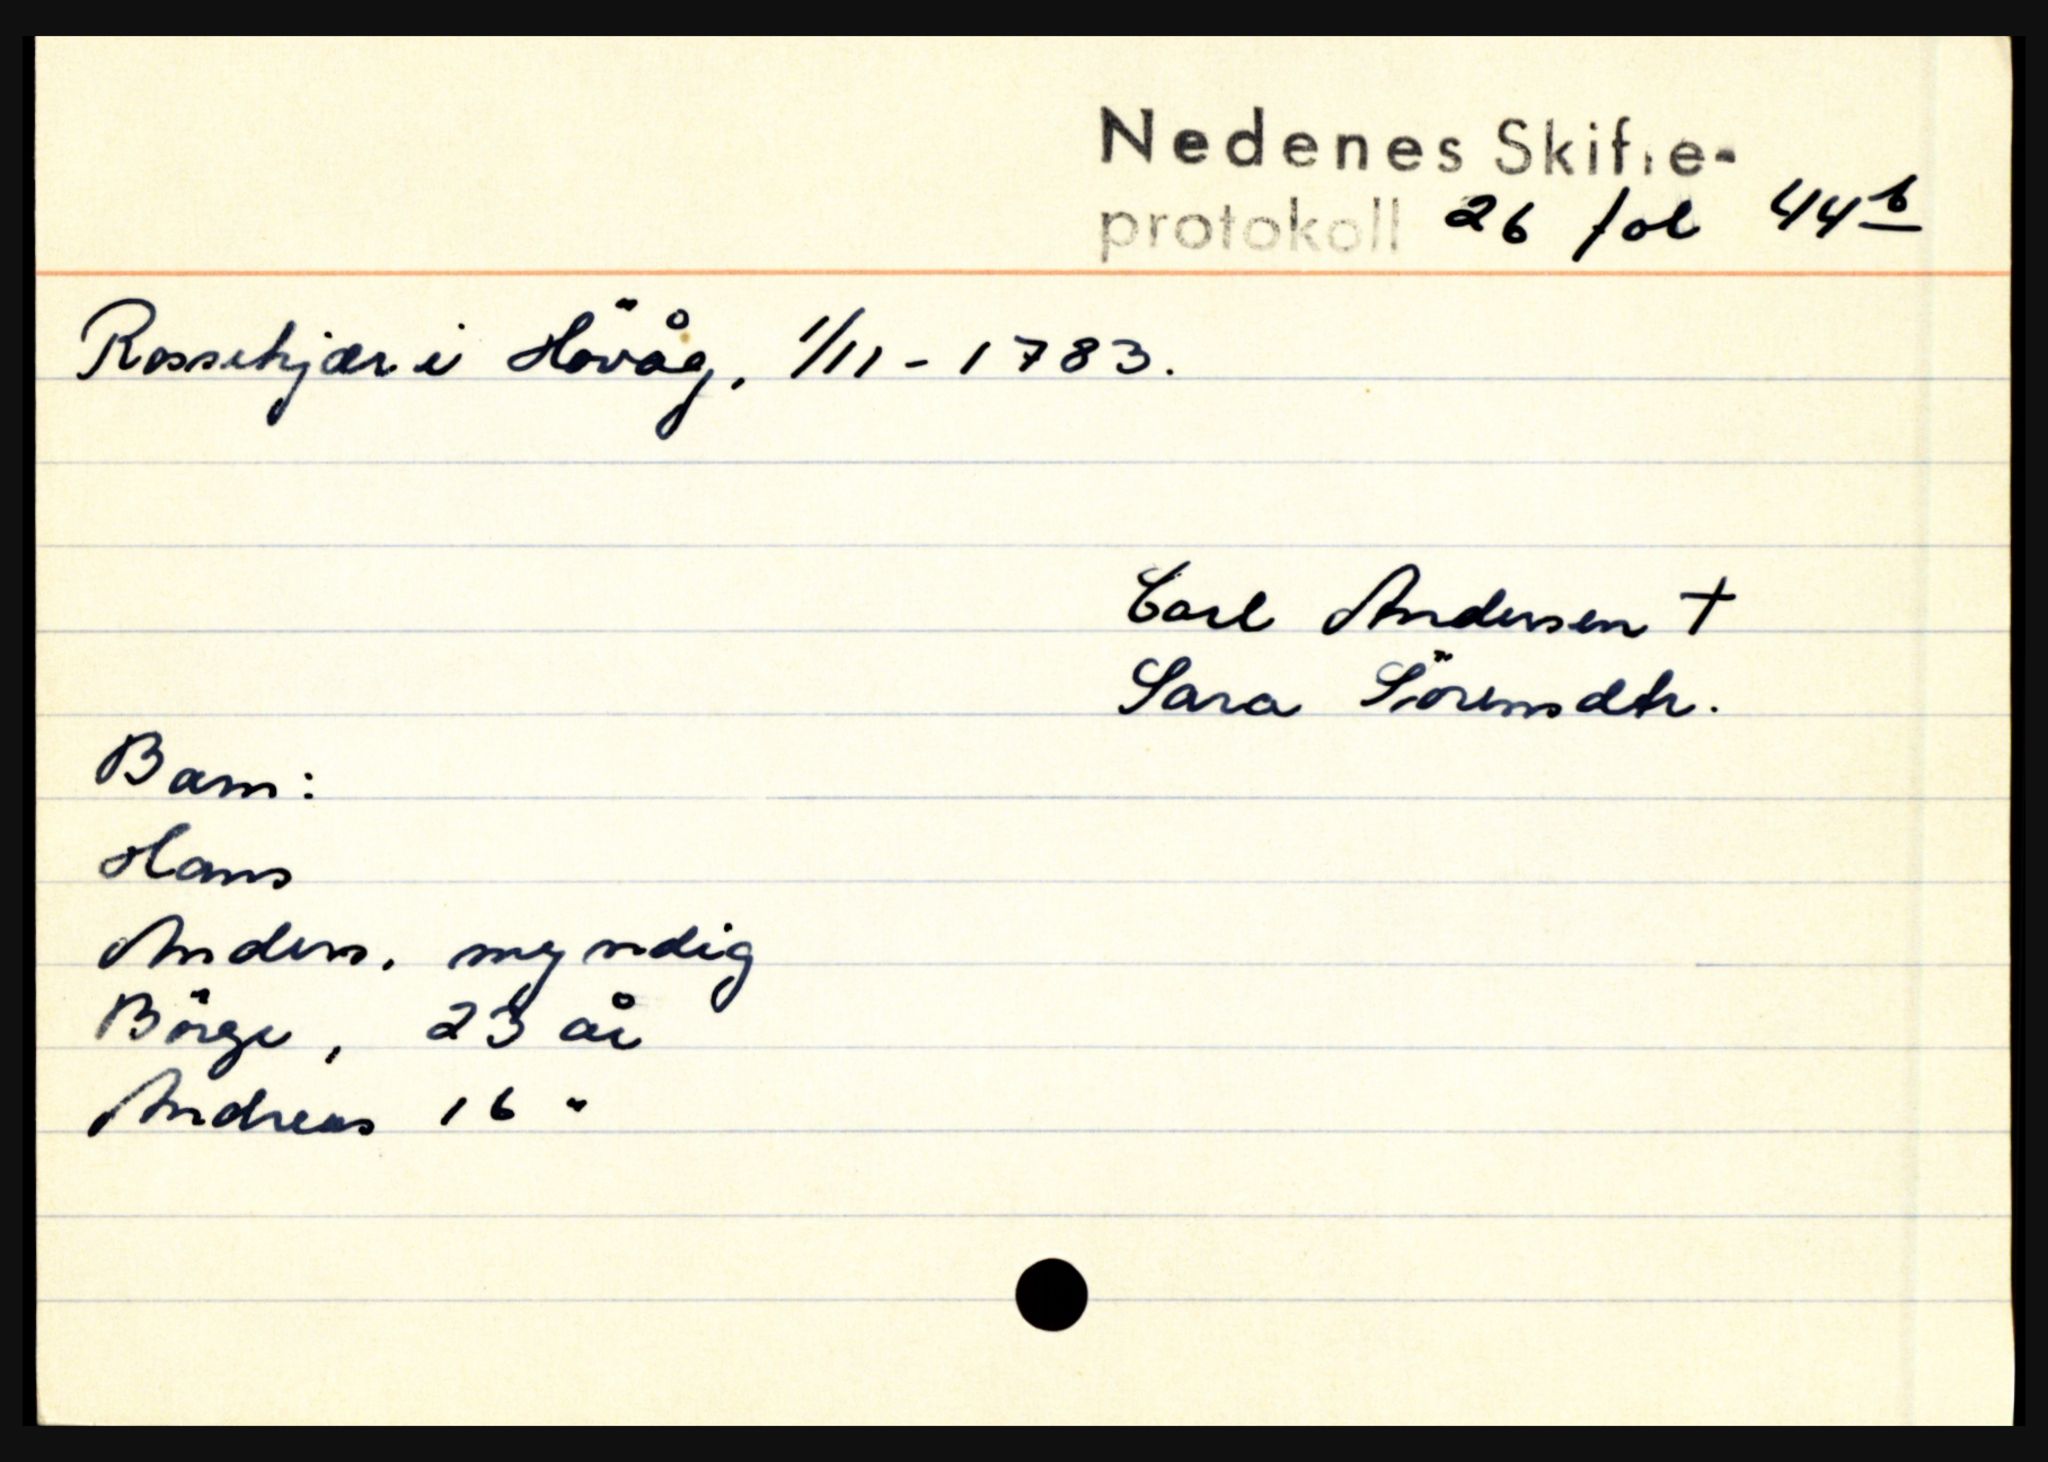 Nedenes Skifte-
protokoll 26 fol 44b
Rossekjær i Hövåg, 1/11 - 1783.
Carl Andersen †
Sara Sörensdtr.
Barn:
Hans
Anders, myndig
Börge, 23 år
Andreas 16 "